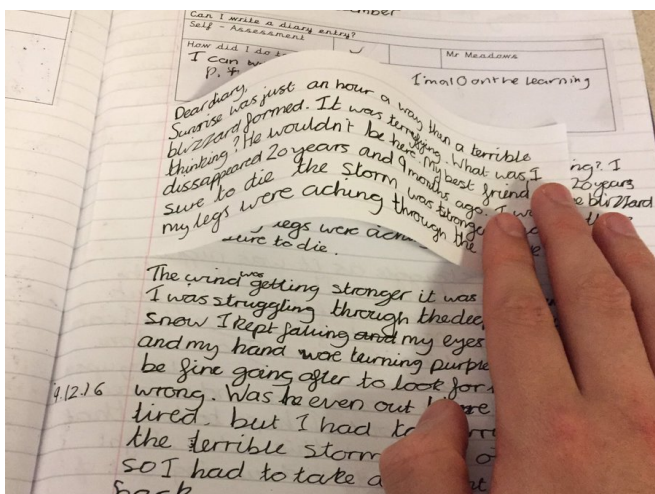 mber
Can I write a diary entry?
Self - Assessment
How did I do
Mr Meadows
I can
I'm a 10 on the learning
Dear diary,
Sunrise was just an hour a way than a terrible
blizzard formed. It was terrefying. What was I
thinking? He wouldn't be here. My best friend
dissappeared 20 years and 9 months ago. I
sure to die the storm was stronge
my legs were aching through the
ng? I
20 years
blizzard
legs were
sure to die.
The wind was getting stronger it was
I was struggling through the dee
snow I kept falling and my eyes
and my hand wore turning purple
be fine going after to look for
9.12.16
wrong. Was he even out
tired, but I had to
the terrible storm
so I had to take a
back